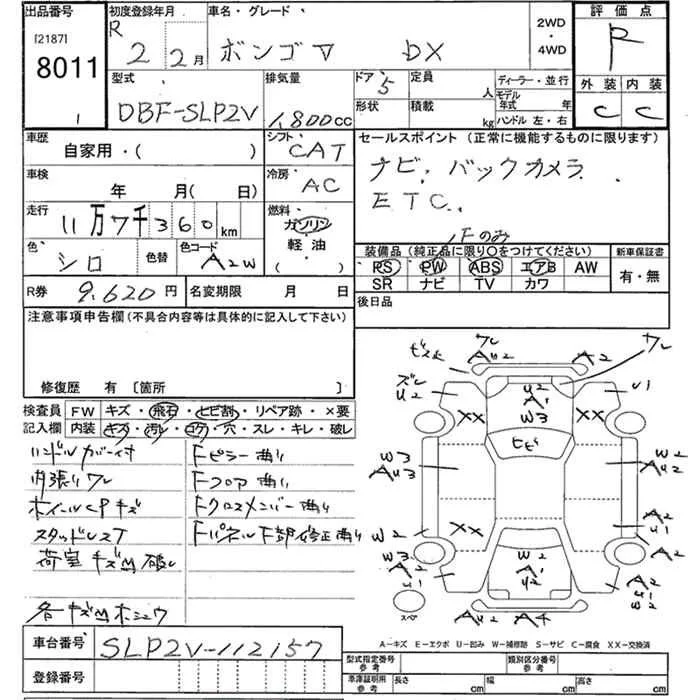 出品番号
[2187]
8011
1
初度登録年月
R 2 2月
車名・グレード
ボンゴV DX
2WD・4WD
評価点
R
型式
DBF-SLP2V
排気量
1,800cc
ドア
5
形状
定員
人
積載
kg
ディーラー・並行
モデル年式 年
ハンドル 左・右
外装 内装
C C
車歴
自家用・( )
シフト
CAT
セールスポイント(正常に機能するものに限ります)
ナビ、バックカメラ
ETC、
車検
年 月( 日)
冷房
AC
走行
11万7千360km
燃料
ガソリン
軽・油
( )
Fのみ
装備品(純正品に限り○をつけてください)
新車保証書
PS PW ABS エアB AW
SR ナビ TV カワ
有・無
色
シロ
色替
色コード
A2W
R券 9,620円
名変期限 月 日
後日品
注意事項申告欄(不具合内容等は具体的に記入して下さい)
修復歴 有〔箇所 〕
検査員記入欄
FW キズ・飛石・ヒビ割・リペア跡・×要
内装 キズ・汚レ・コゲ・穴・スレ・キレ・破レ
ハンドルカバー付
内張りワレ
ホイールCPキズ
スタッドレスT
荷室キズM破レ
各キズM凹ショウ
Fピラー曲り
Fフロア曲り
Fクロスメンバー曲り
Fパネル下部修正曲り
ビスた
ワレ
AU2
A2
ワレ
ズレ
U2
U2
A1
W3
U1
XX
XX
ヒビ
W3
AU3
W2
AU2
W2
XX
A2
U1
A2
W3
A2
U1
W2
A1
U2
A2
U1
W2
スペ
AU2
A4
A－キズ E－エクボ U－凹み W－補修跡 S－サビ C－腐食 XX－交換済
車台番号
SLP2V-112157
登録番号
型式指定番号 参考
類別区分番号 参考
車庫証明用 参考
長さ cm
幅 cm
高さ cm